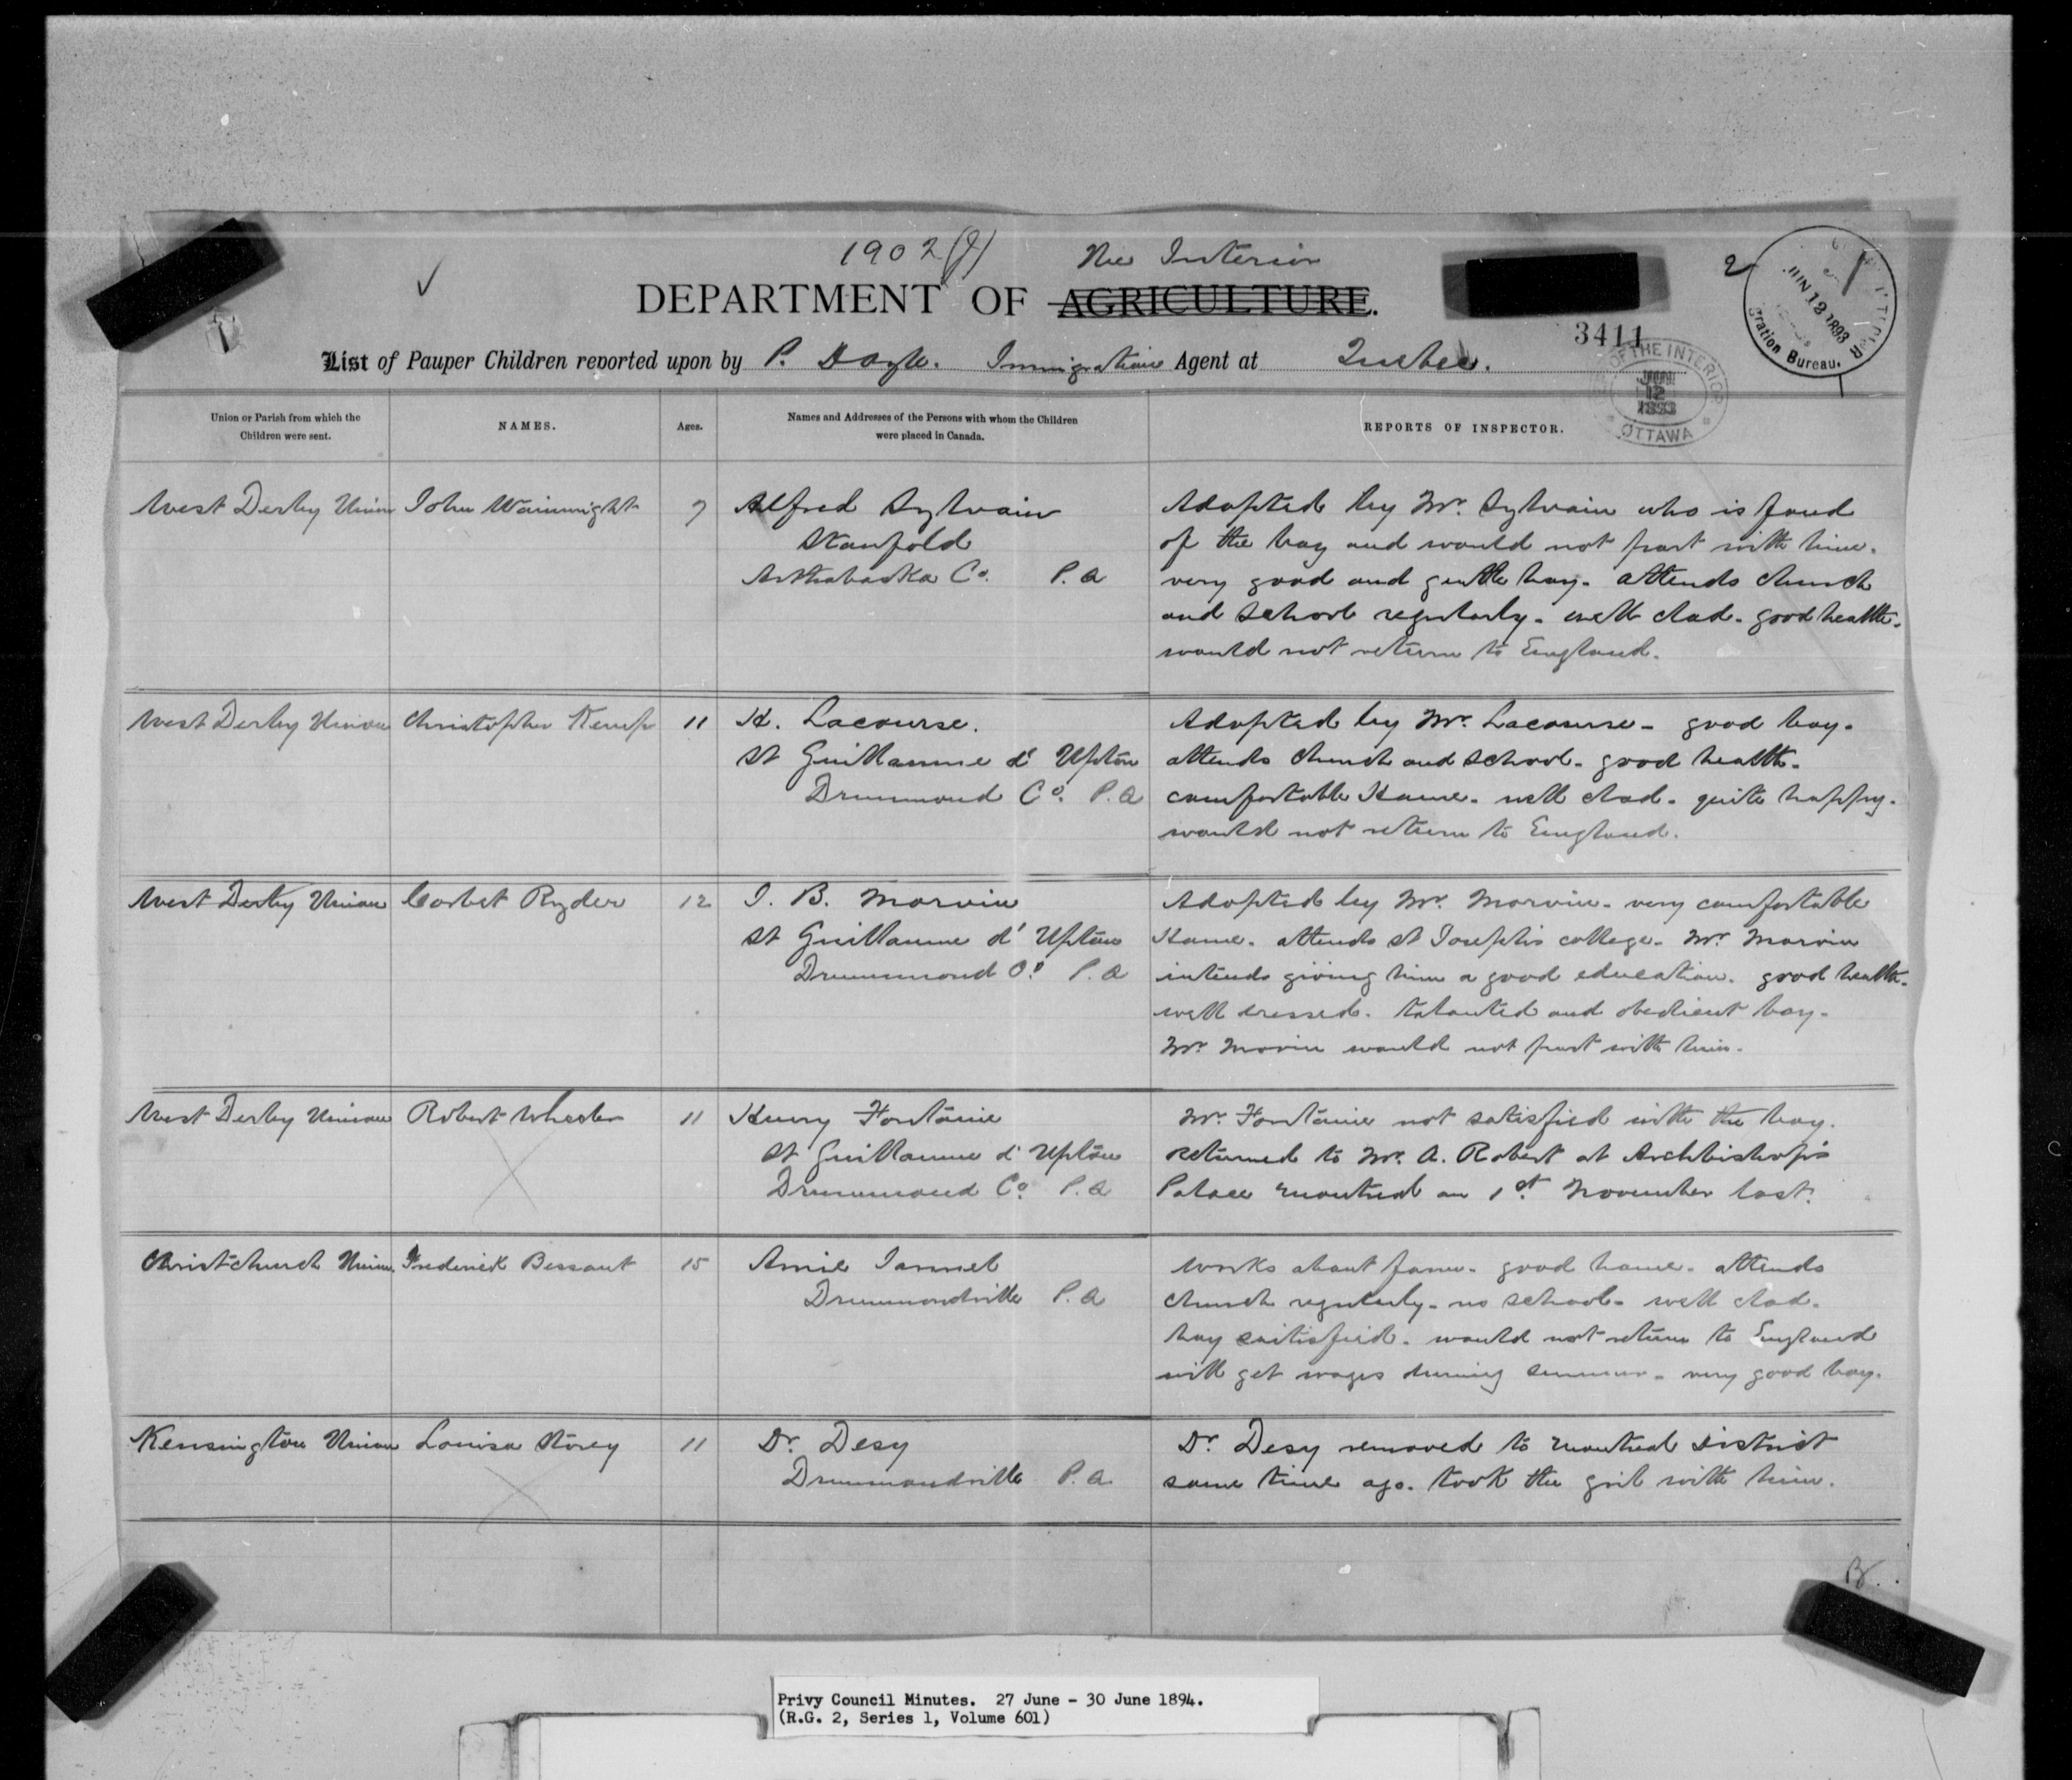 1902 (J) The Interior
DEPARTMENT OF AGRICULTURE.
2
JUN 12 1893
gration Bureau.
3411
OF THE INTERIOR
12
1893
OTTAWA
List of Pauper Children reported upon by P. Doyle. Immigration Agent at Quebec.
Union or Parish from which the
Children were sent.
NAMES.
Ages.
Names and Addresses of the Persons with whom the Children
were placed in Canada.
REPORTS OF INSPECTOR.
West Derby Union John Wainwright 7 Alfred Sylvain
Stanfold
Arthabaska Co. P.Q
Adopted by Mr. Sylvain who is fond
of the boy and would not part with him.
very good and gentle boy. attends church
and school regularly. well clad. good health.
would not return to England.
West Derby Union Christopher Kemp 11 H. Lacourse.
St Guillaume d' Upton
Drummond Co. P.Q
Adopted by Mr. Lacourse - good boy.
attends church and school. good health.
comfortable Home. well clad. quite happy.
would not return to England.
West Derby Union Corbet Ryder 12 J. B. Morvin
St Guillaume d' Upton
Drummond Co P.Q
Adopted by Mr. Morvin. very comfortable
Home. attends St Joseph's college. Mr. Morvin
intends giving him a good education. good health.
well dressed. talanted and obedient boy.
Mr Morvin would not part with him.
West Derby Union Robert Wheeler 11 Henry Fontaine
St Guillaume d' Upton
Drummond Co P.Q
Mr. Fontaine not satisfied with the boy.
returned to Mr. A. Robert at Archbishop's
Palace Montreal on 1st November last.
Christchurch Union Frederick Bessant 15 Amie Jannel
Drummondville P.Q
Works about farm. good home. attends
church regularly. no school. well clad.
boy satisfied. would not return to England
will get wages during summer. very good boy.
Kensington Union Louisa Storey 11 Dr. Desy
Drummondville P.Q.
Dr. Desy removed to Montreal District
some time ago. took the girl with him.
Privy Council Minutes. 27 June - 30 June 1894.
(R.G. 2, Series 1, Volume 601)